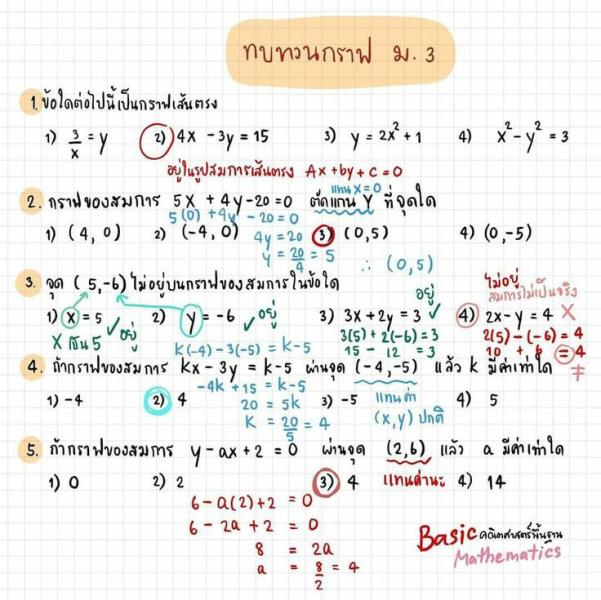 ทบทวนกราฟ ม.3
1. ข้อใดต่อไปนี้เป็นกราฟเส้นตรง
1) 3/x = y 2) 4x - 3y = 15 3) y = 2x² + 1 4) x² - y² = 3
อยู่ในรูปสมการเส้นตรง Ax + by + c = 0
2. กราฟของสมการ 5x + 4y - 20 = 0 ตัดแกน Y ที่จุดใด
แทน x = 0
5(0) + 4y - 20 = 0
1) (4, 0) 2) (-4, 0) 3) (0, 5) 4) (0, -5)
4y = 20
y = 20/4 = 5 ∴ (0, 5)
3. จุด (5, -6) ไม่อยู่บนกราฟของสมการในข้อใด
อยู่
ไม่อยู่
สมการไม่เป็นจริง
1) x = 5 ✓ อยู่ 2) y = -6 ✓ อยู่ 3) 3x + 2y = 3 ✓ 4) 2x - y = 4 X
X เป็น 5
3(5) + 2(-6) = 3 2(5) - (-6) = 4
15 - 12 = 3 10 + 6 = 4
≠
k(-4) - 3(-5) = k - 5
4. ถ้ากราฟของสมการ kx - 3y = k - 5 ผ่านจุด (-4, -5) แล้ว k มีค่าเท่าใด
-4k + 15 = k - 5
1) -4 2) 4 3) -5 4) 5
20 = 5k
k = 20/5 = 4
แทนค่า
(x, y) ปกติ
5. ถ้ากราฟของสมการ y - ax + 2 = 0 ผ่านจุด (2, 6) แล้ว a มีค่าเท่าใด
1) 0 2) 2 3) 4 แทนค่านะ 4) 14
6 - a(2) + 2 = 0
6 - 2a + 2 = 0
8 = 2a
a = 8/2 = 4
Basic คณิตศาสตร์พื้นฐาน
Mathematics